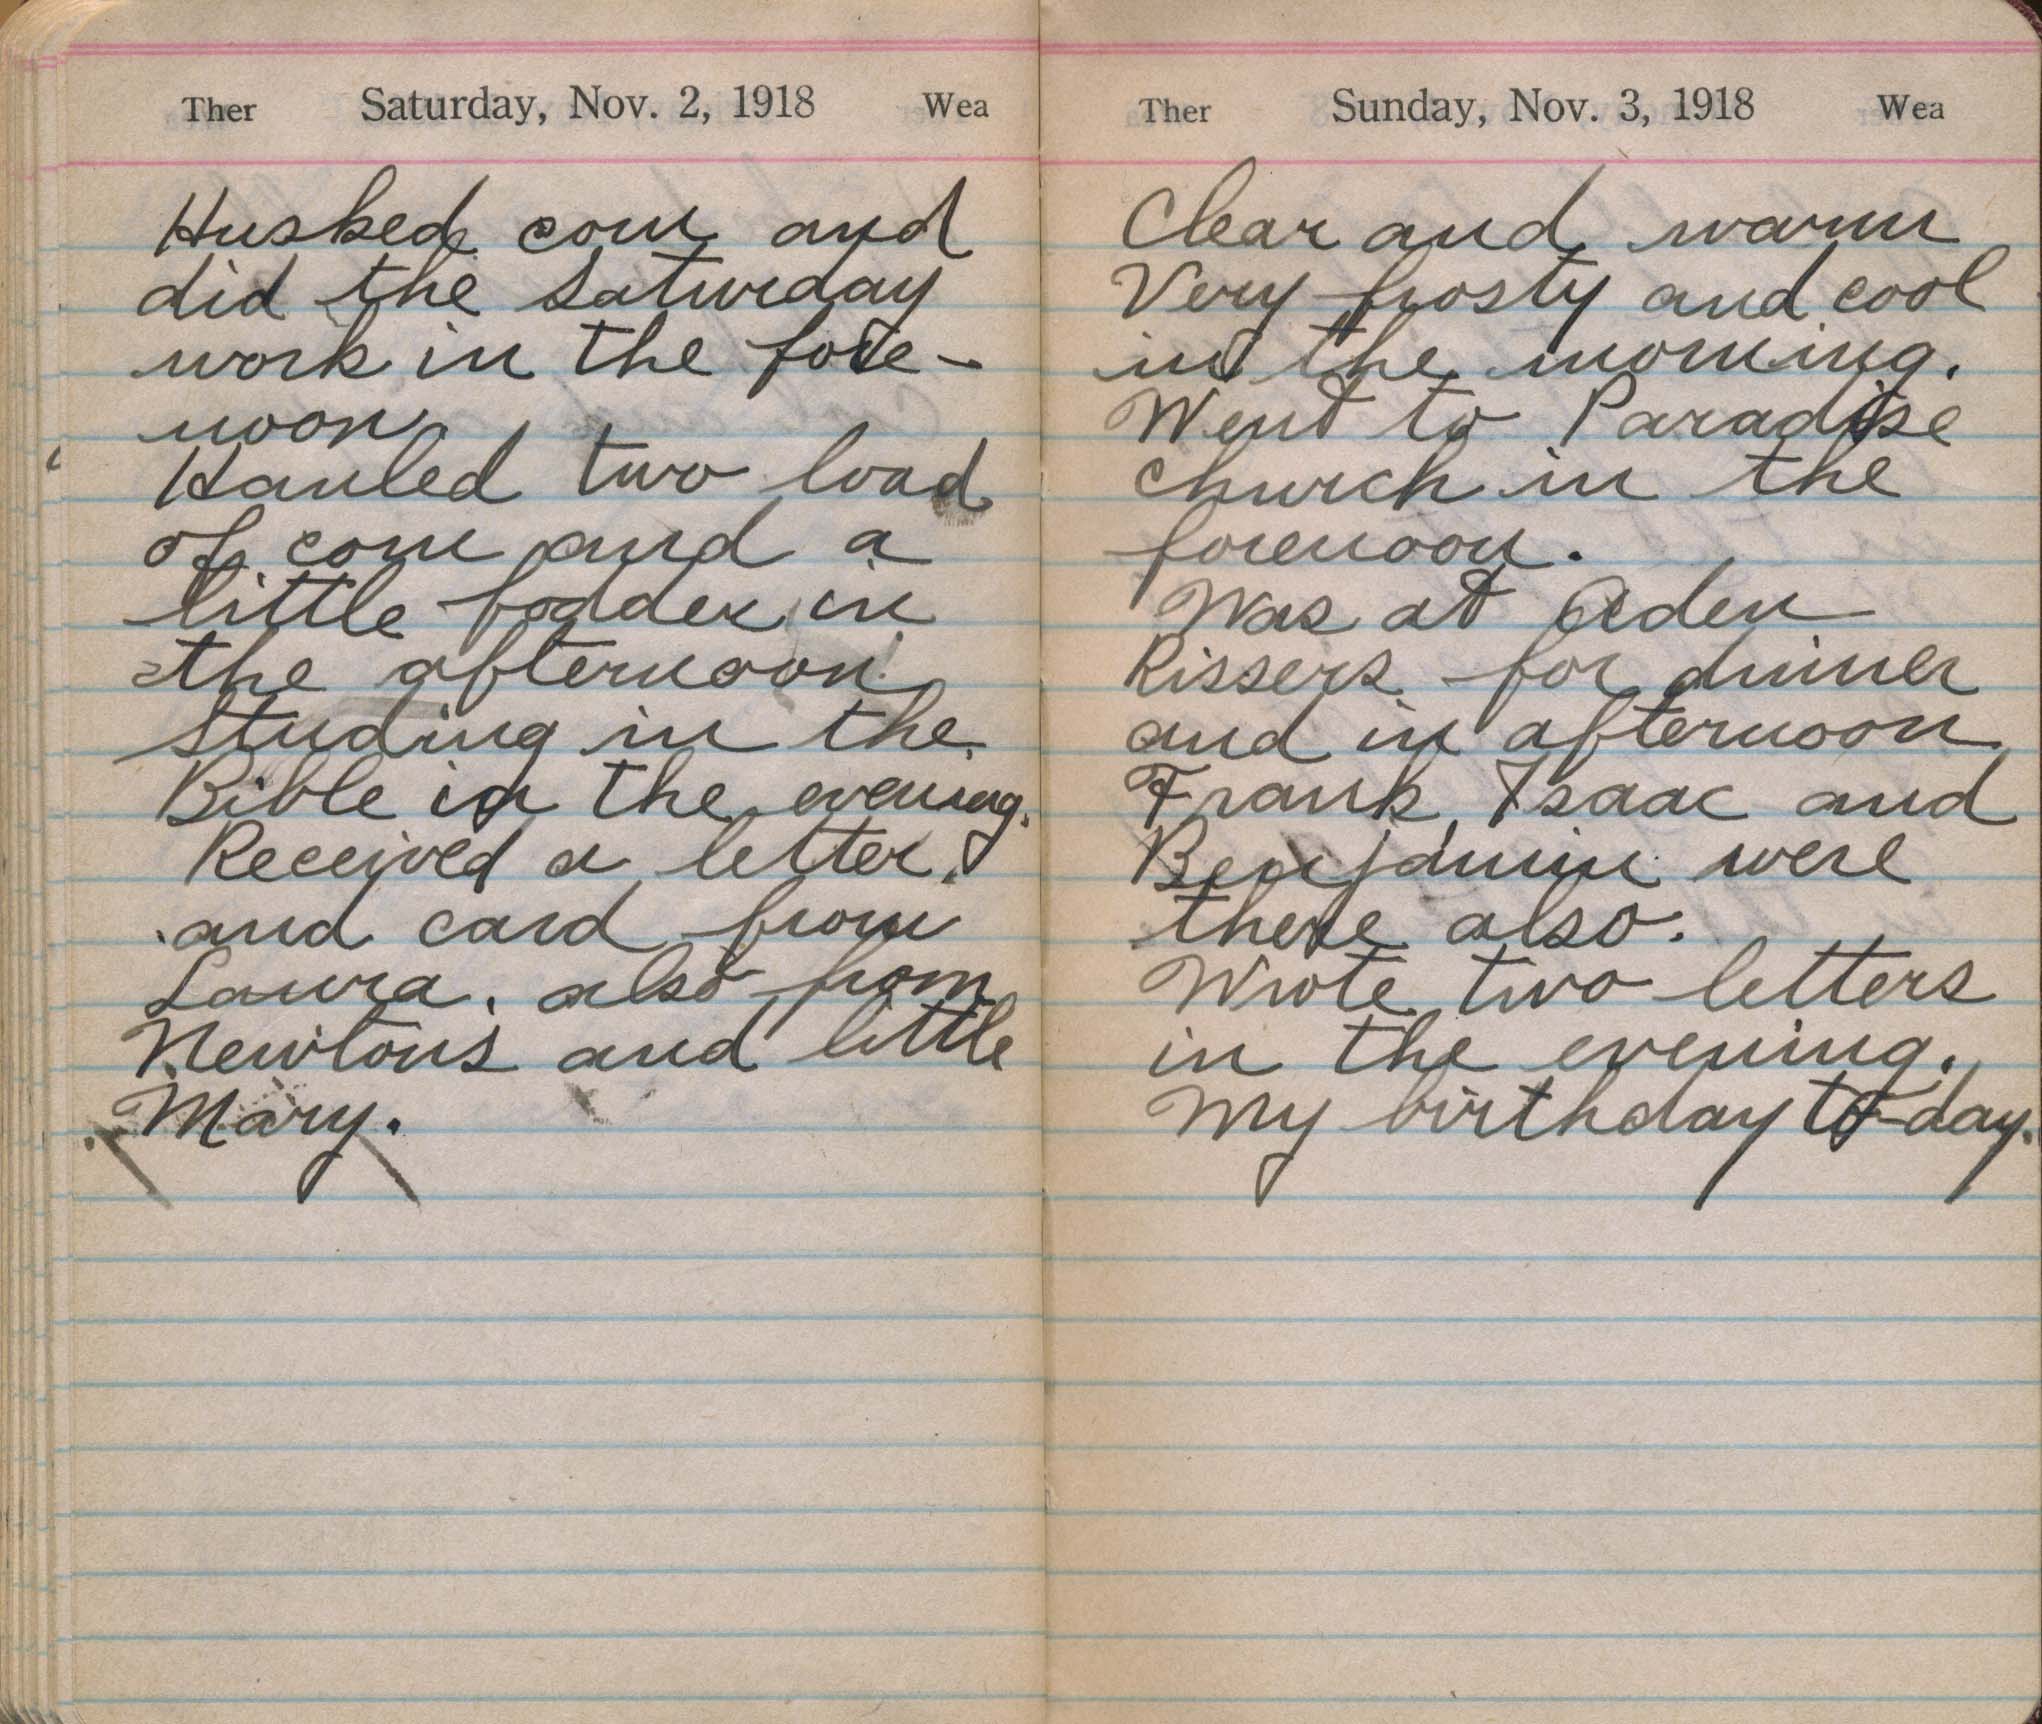 Ther Saturday, Nov. 2, 1918 Wea
Husked corn and
did the Saturday
work in the fore-
noon
Hauled two load
of corn and a
little fodder in
the afternoon
Studing in the
Bible in the evening.
Received a letter
and card from
Laura. also from
Newtons and little
Mary.
Ther Sunday, Nov. 3, 1918 Wea
Clear and warm
Very frosty and cool
in the morning.
Went to Paradise
church in the
forenoon.
Was at Aden
Rissers for dinner
and in afternoon
Frank, Isaac and
Benjamin were
there also.
Wrote two letters
in the evening.
My birthday to-day.